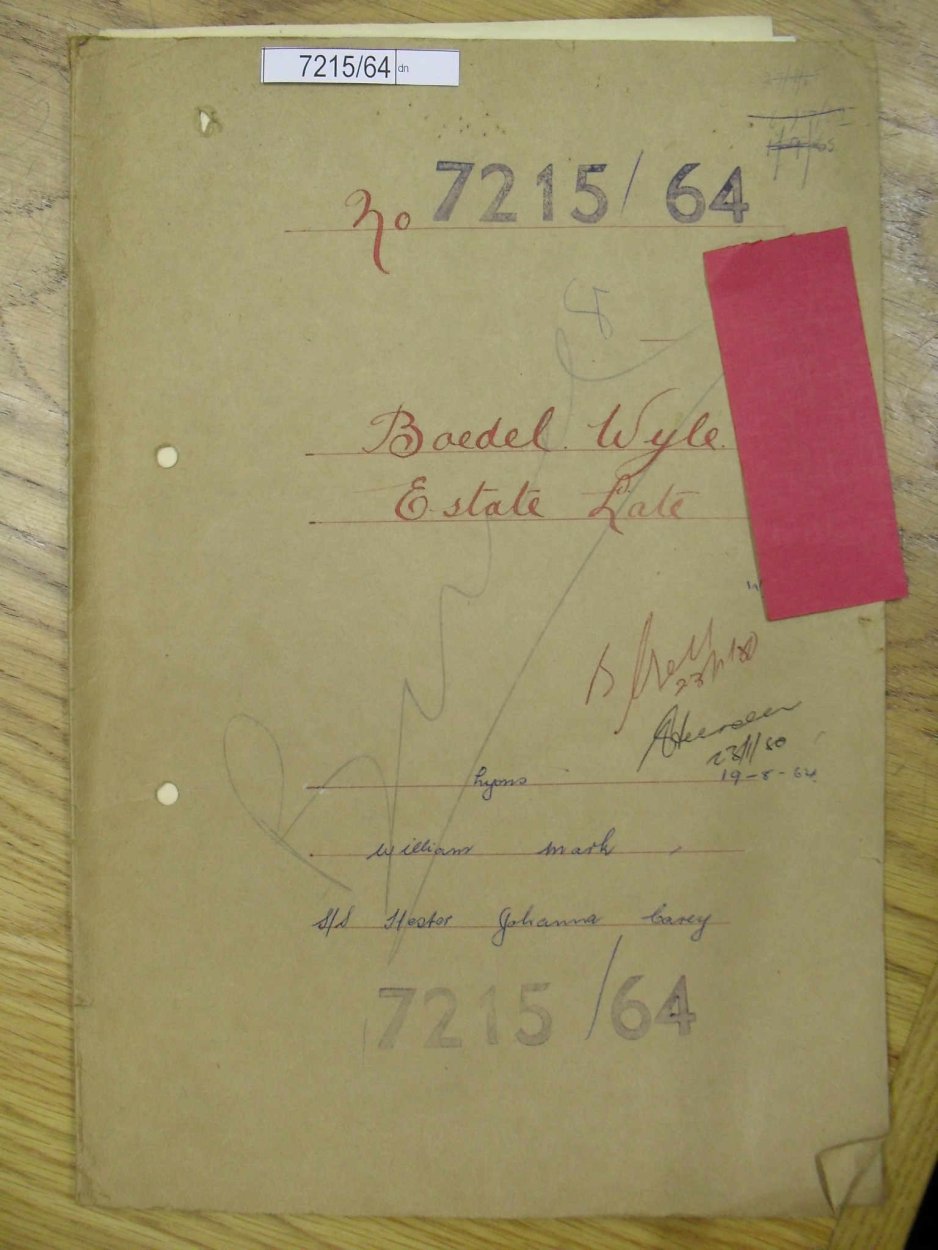 7215/64 dn
No 7215/64
Boedel Wyle
Estate Late
23/1/80
23/1/80
Lyons 19-8-64
William Mark
S/S Hester Johanna Carey
7215/64